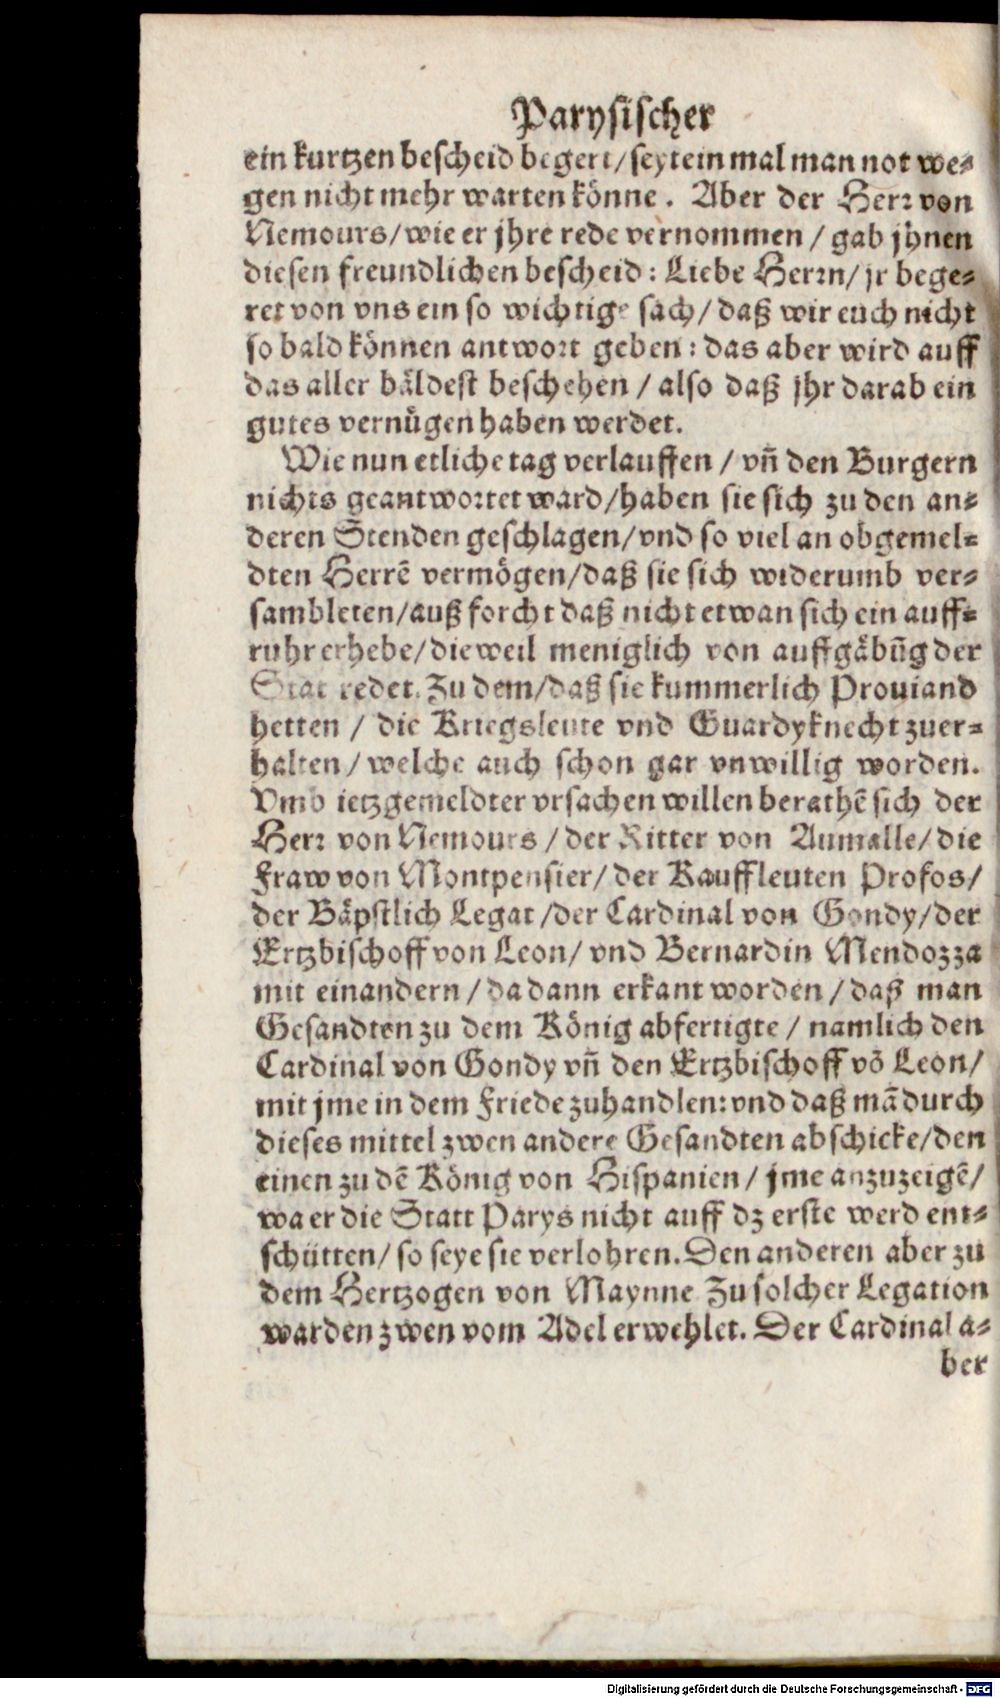 Parysischer
ein kurtzen bescheid begert/seytein mal man not we⸗
gen nicht mehr warten könne. Aber der Herr von
Nemours/wie er jhre rede vernommen / gab jhnen
diesen freundlichen bescheid: Liebe Herrn/ jr bege⸗
ret von vns ein so wichtige sach/ daß wir euch nicht
so bald können antwort geben: das aber wird auff
das aller bäldest beschehen / also daß jhr darab ein
gutes vernügen haben werdet.
Wie nun etliche tag verlauffen / vñ den Burgern
nichts geantwortet ward/haben sie sich zu den an⸗
deren Stenden geschlagen/vnd so viel an obgemel⸗
dten Herrẽ vermögen/daß sie sich widerumb ver⸗
sambleten/auß forcht daß nicht etwan sich ein auff⸗
ruhr erhebe/dieweil meniglich von auffgäbũg der
Stat redet. Zu dem/daß sie kummerlich Prouiand
hetten / die Kriegsleute vnd Guardyknecht zuer⸗
halten/ welche auch schon gar vnwillig worden.
Vmb ietzgemeldter vrsachen willen berathẽ sich der
Herr von Nemours / der Ritter von Aumalle/ die
Fraw von Montpensier/ der Kauffleuten Profos/
der Bäpstlich Legat /der Cardinal von Gondy/der
Ertzbischoff von Leon/ vnd Bernardin Mendozza
mit einandern / da dann erkant worden / daß man
Gesandten zu dem König abfertigte / namlich den
Cardinal von Gondy vñ den Ertzbischoff võ Leon/
mit jme in dem Friede zuhandlen: vnd daß mã durch
dieses mittel zwen andere Gesandten abschicke/den
einen zu dẽ König von Hispanien / jme anzuzeigẽ/
wa er die Statt Parys nicht auff dz erste werd ent⸗
schütten/ so seye sie verlohren. Den anderen aber zu
dem Hertzogen von Maynne Zu solcher Legation
warden zwen vom Adel erwehlet. Der Cardinal a⸗
ber
Digitalisierung gefördert durch die Deutsche Forschungsgemeinschaft - DFG